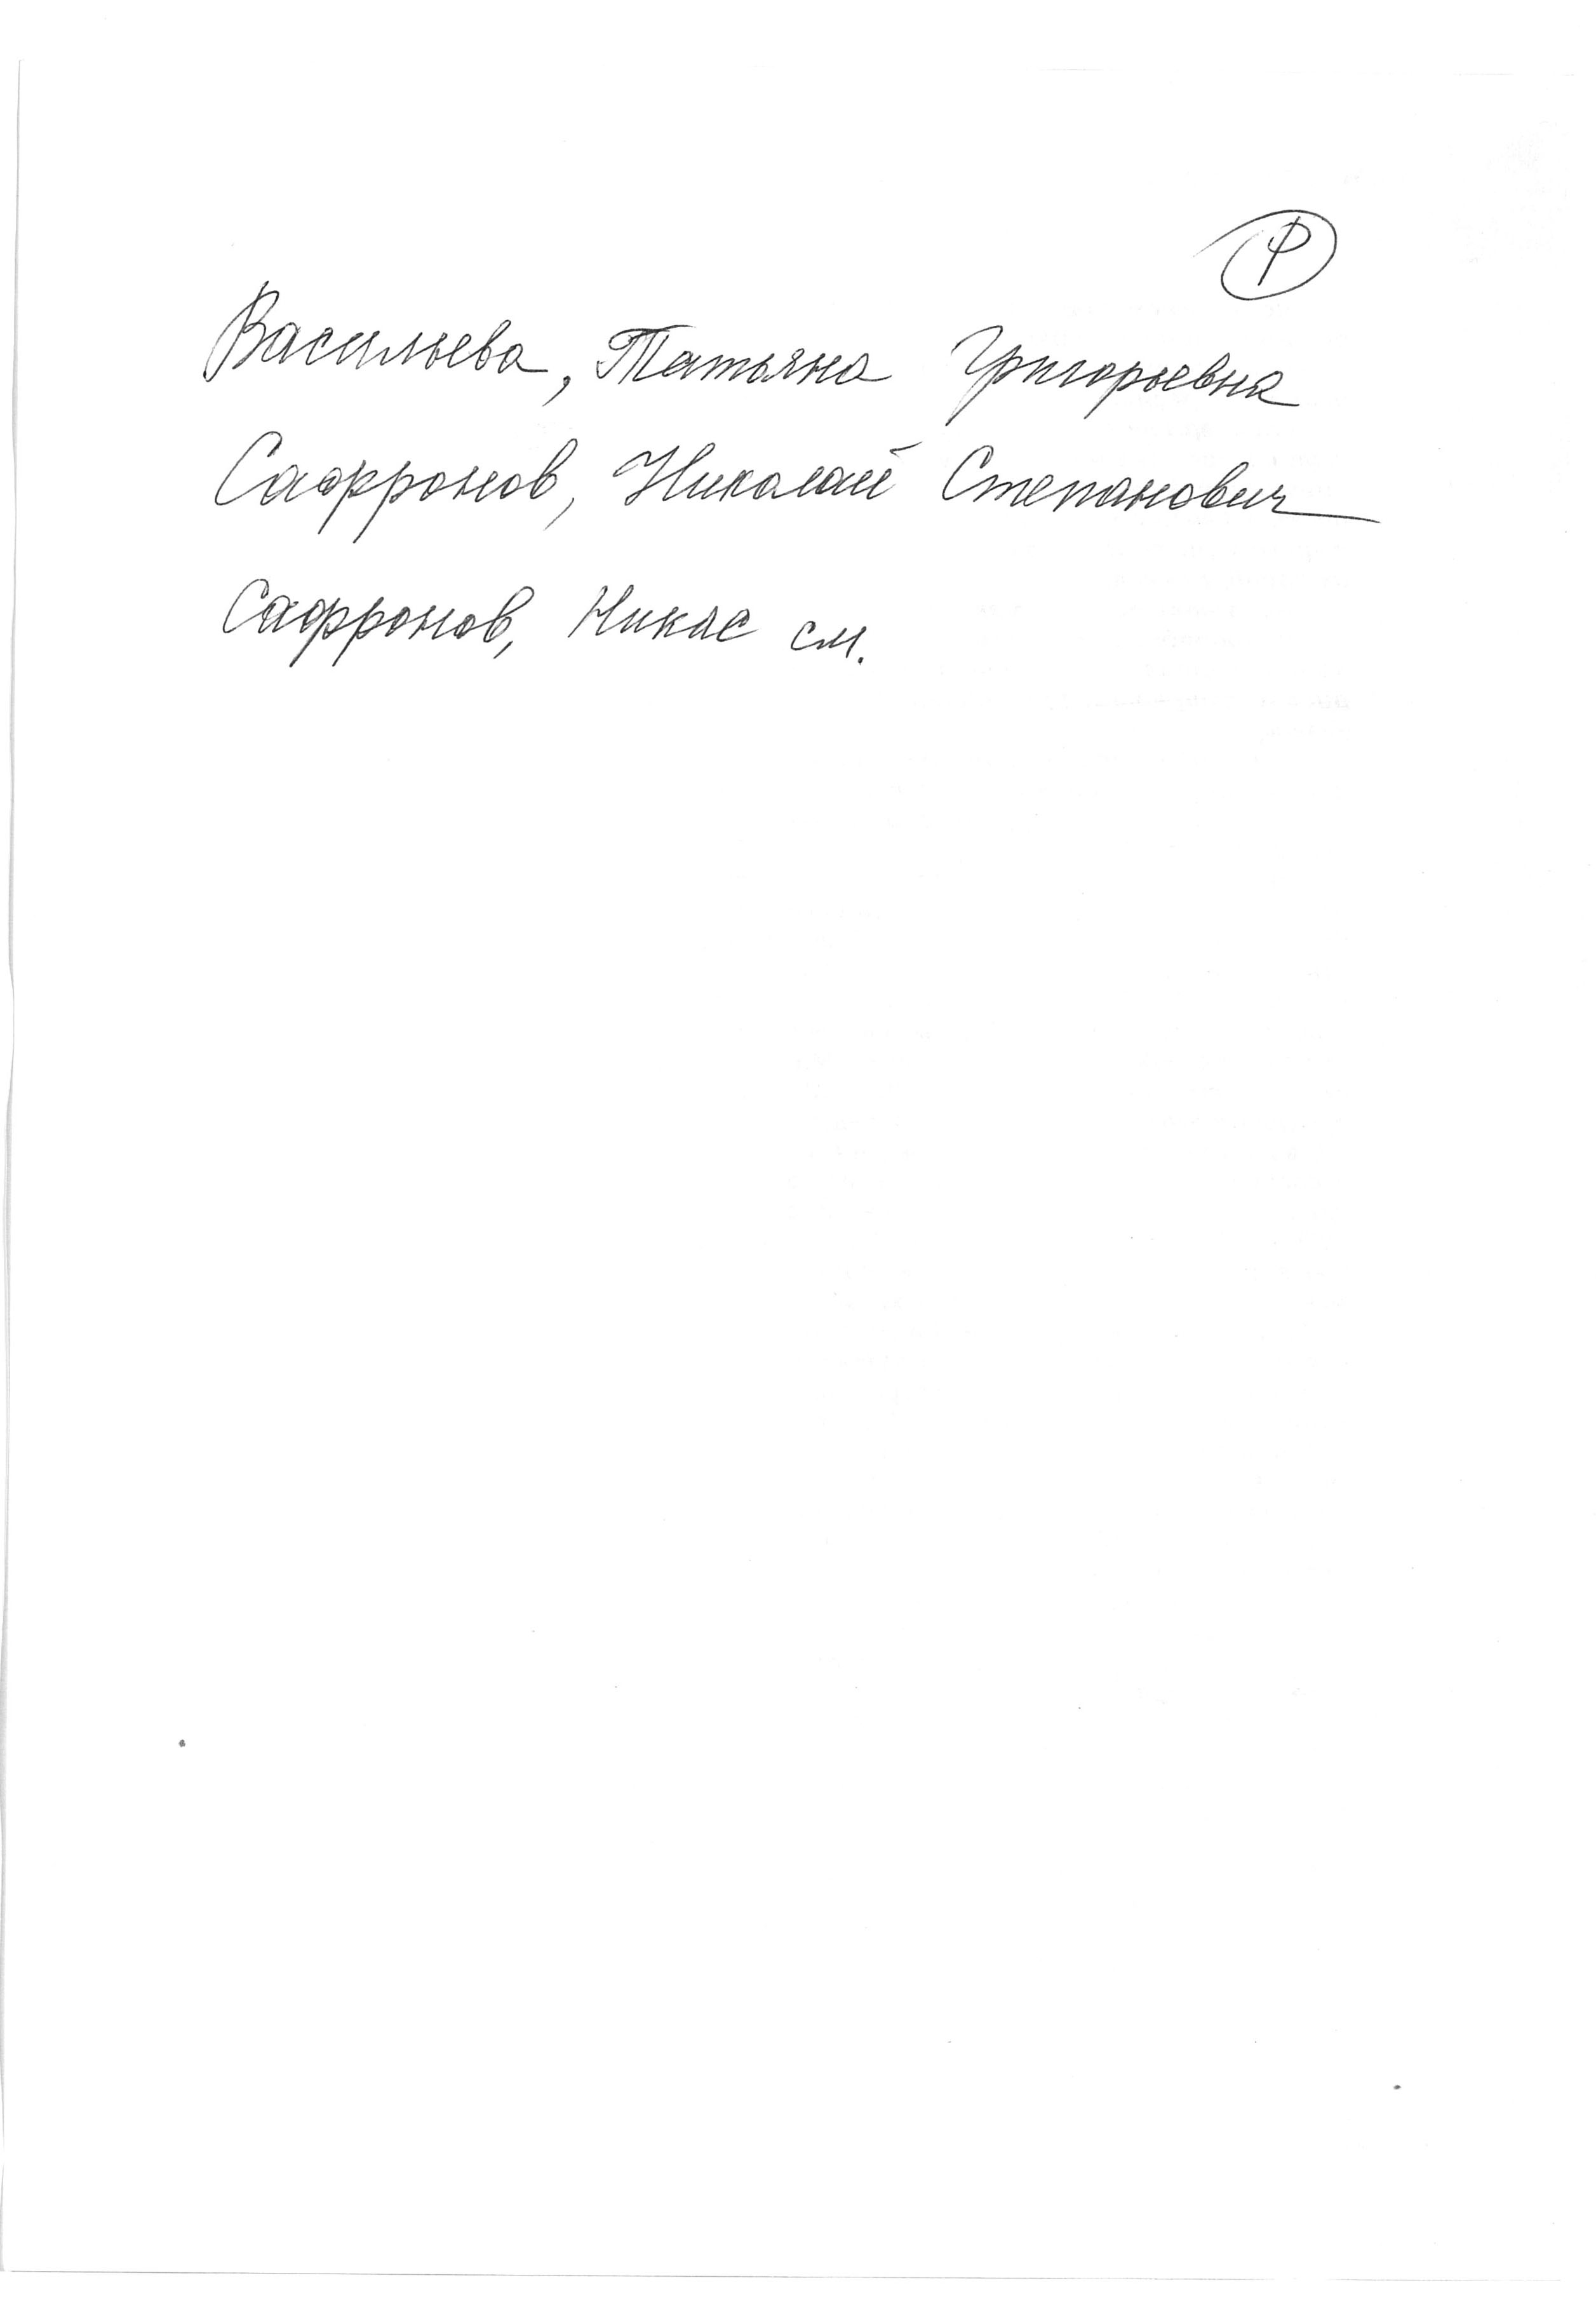 Ф
Васильева, Татьяна Григорьевна
Сафронов, Николай Степанович
Сафронов, Никас см.